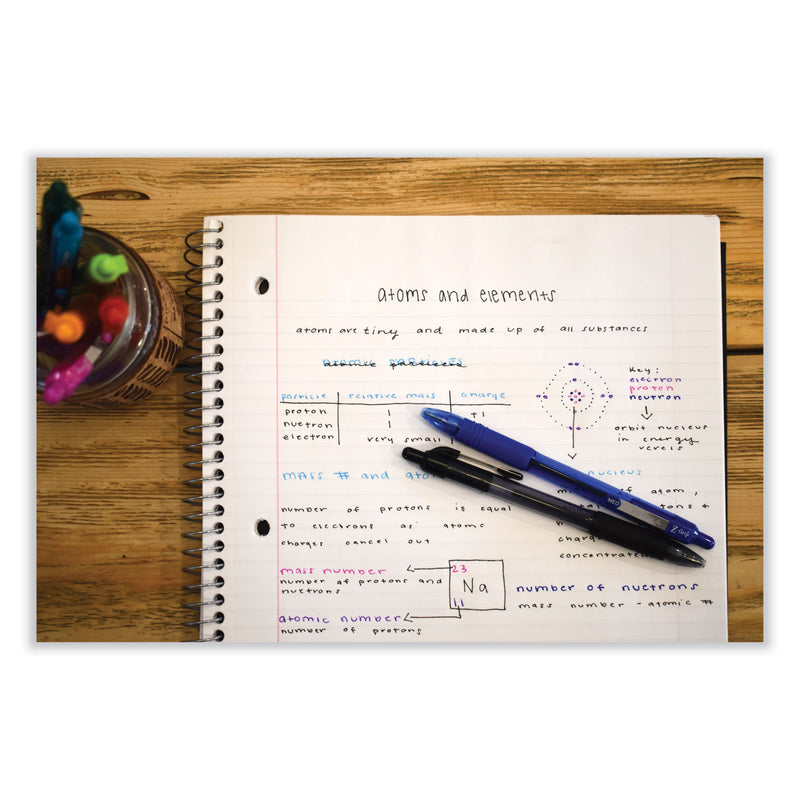 atoms and elements
atoms are tiny and made up of all substances
atomic particles
Key:
electron
proton
neutron
particle relative mass charge
proton 1 +1
nuetron 1
electron very small
orbit nucleus
in energy
verels
mass # and
nucleus
of atom,
number of protons is equal
to electrons as atoms
charges cancel out
concentrated
mass number
number of protons and
nuetrons
23
Na
11
atomic number
number of protons
number of nuetrons
mass number - atomic #
MED
Z-Grip